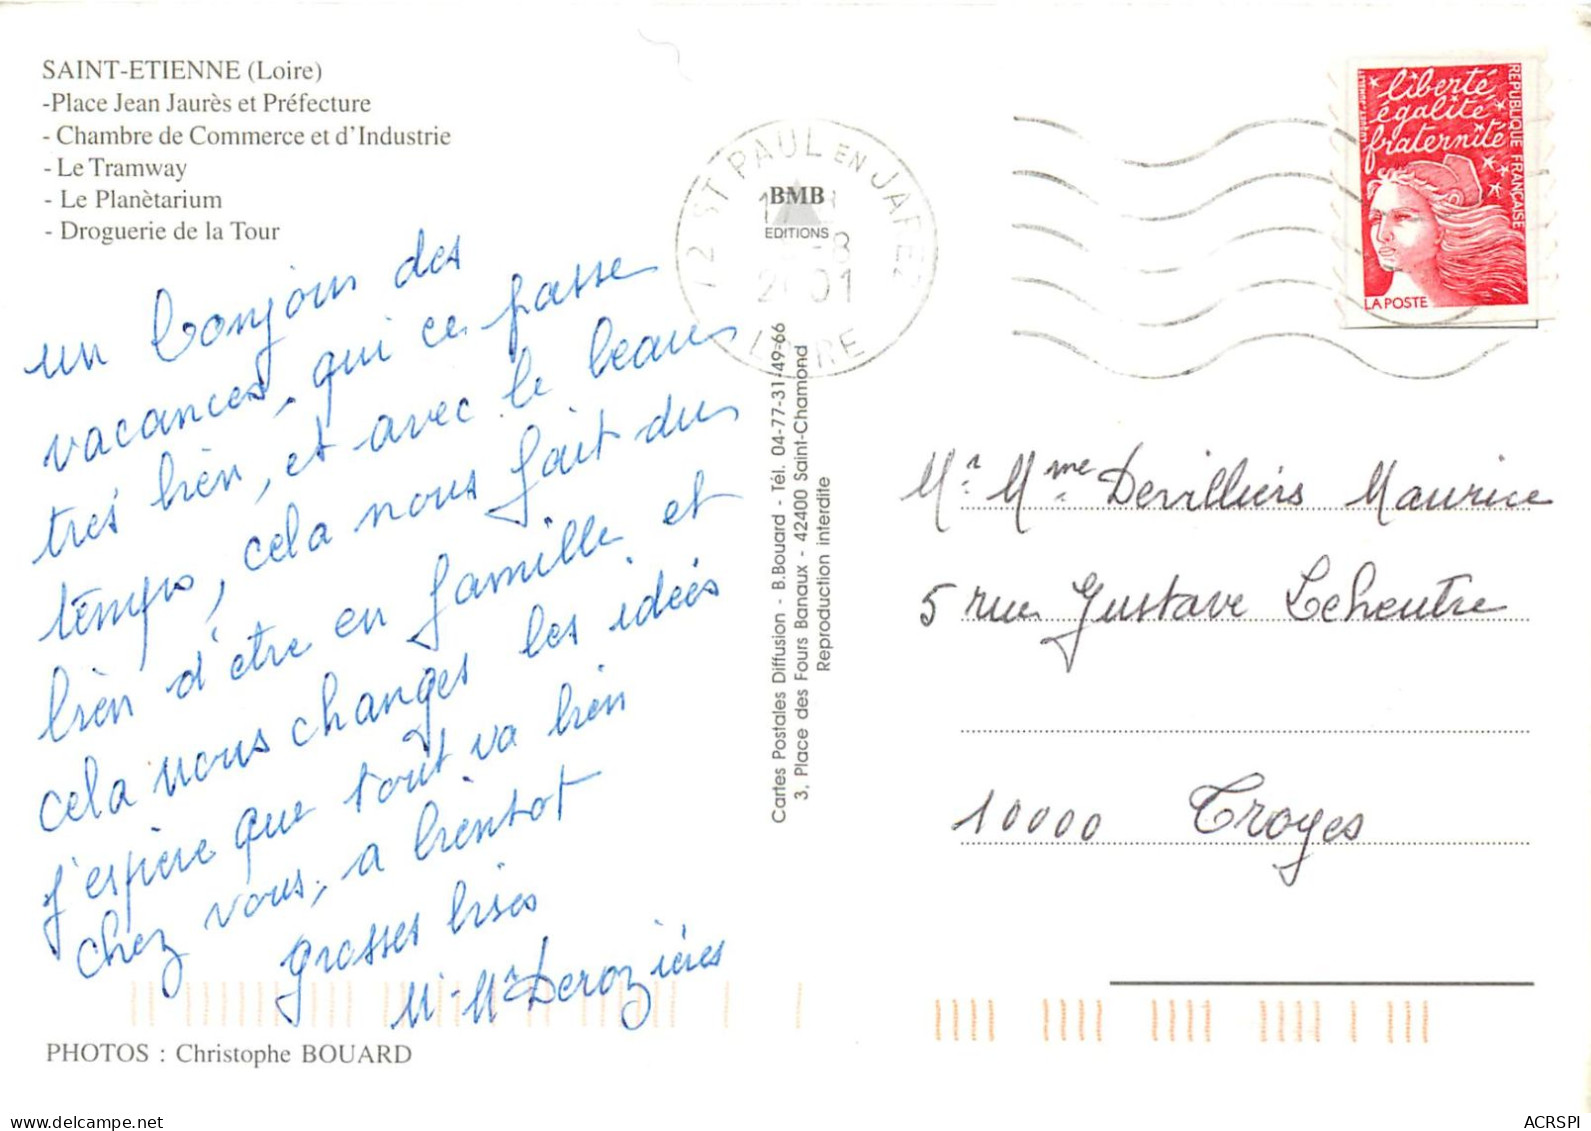 SAINT-ETIENNE (Loire)
-Place Jean Jaurès et Préfecture
- Chambre de Commerce et d'Industrie
- Le Tramway
- Le Planètarium
- Droguerie de la Tour
un bonjour des
vacances, qui ce passe
tres bien, et avec le beau
temps, cela nous fait du
bien d'être en famille et
cela nous changes les idées
j'espère que tout va bien
chez vous, a bientot
grosses bises
M. Mr Derozières
PHOTOS : Christophe BOUARD
42 ST PAUL EN JAREZ
-8
2001
LOIRE
BMB
EDITIONS
Cartes Postales Diffusion - B.Bouard - Tél. 04-77-31-49-66
3, Place des Fours Banaux - 42400 Saint-Chamond
Reproduction interdite
liberté
égalité
fraternité
REPUBLIQUE FRANÇAISE
LA POSTE
Mr. Mme Devilliers Maurice
5 rue Gustave Leheutre
10000 Troyes
delcampe.net
ACRSPI